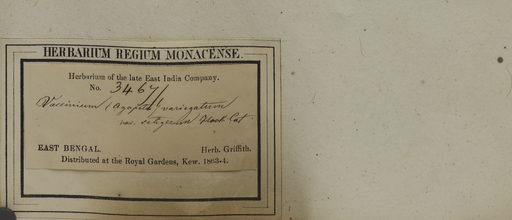 HERBARIUM REGIUM MONACENSE.
Herbarium of the late East India Company.
No. 3467/1
Vaccinium (Agapetes) variegatum
var. setigerum Hook Cat
EAST BENGAL. Herb. Griffith.
Distributed at the Royal Gardens, Kew. 1863-4.